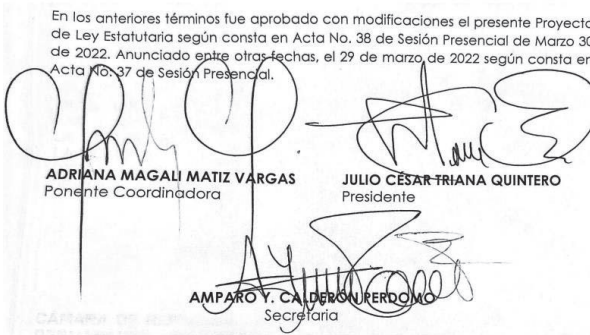 En los anteriores términos fue aprobado con modificaciones el presente Proyecto
de Ley Estatutaria según consta en Acta No. 38 de Sesión Presencial de Marzo 30
de 2022. Anunciado entre otras fechas, el 29 de marzo de 2022 según consta en
Acta No. 37 de Sesión Presencial.
ADRIANA MAGALI MATIZ VARGAS
Ponente Coordinadora
JULIO CÉSAR TRIANA QUINTERO
Presidente
AMPARO Y. CALDERÓN PERDOMO
Secretaria